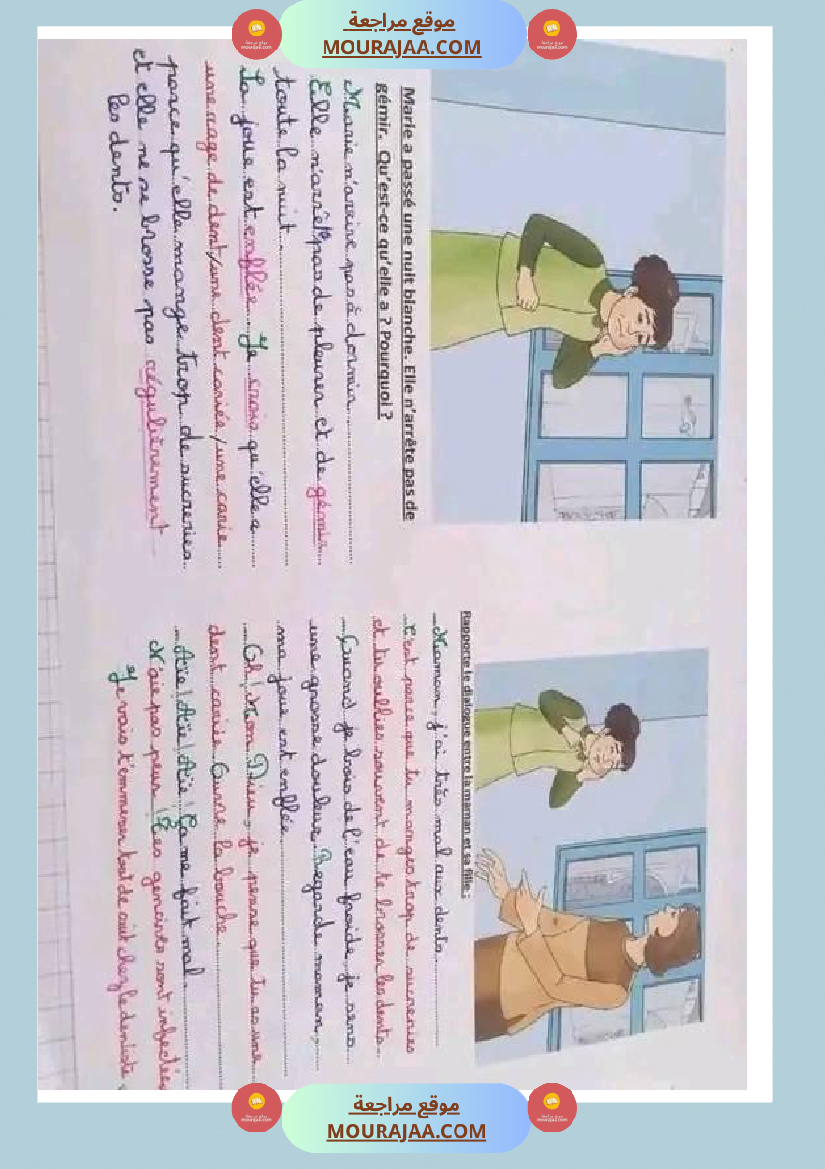 موقع مراجعة
MOURAJAA.COM
Marie a passé une nuit blanche. Elle n'arrête pas de
gémir. Qu'est-ce qu'elle a ? Pourquoi ?
Marie n'arrive pas à dormir
Elle n'arrête pas de pleurer et de gémir
toute la nuit
La joue est enflée. Je crois qu'elle a
une rage de dent/une dent cariée/une carie
parce qu'elle mange trop de sucreries
et elle ne se brosse pas régulièrement
les dents.
Rapporte le dialogue entre la maman et sa fille :
_ Maman, j'ai très mal aux dents
_ C'est parce que tu manges trop de sucreries
et tu oublies souvent de te brosser les dents
_ Quand je bois de l'eau froide, je sens
une grosse douleur. Regarde maman,
ma joue est enflée
_ Oh! Mon Dieu, je pense que tu as une
dent cariée. Ouvre la bouche
_ Aïe! Aïe! Aïe! Ça me fait mal.
N'aie pas peur! Tes gencives sont infectées
Je vais t'emmener tout de suit chez le dentiste.
موقع مراجعة
MOURAJAA.COM